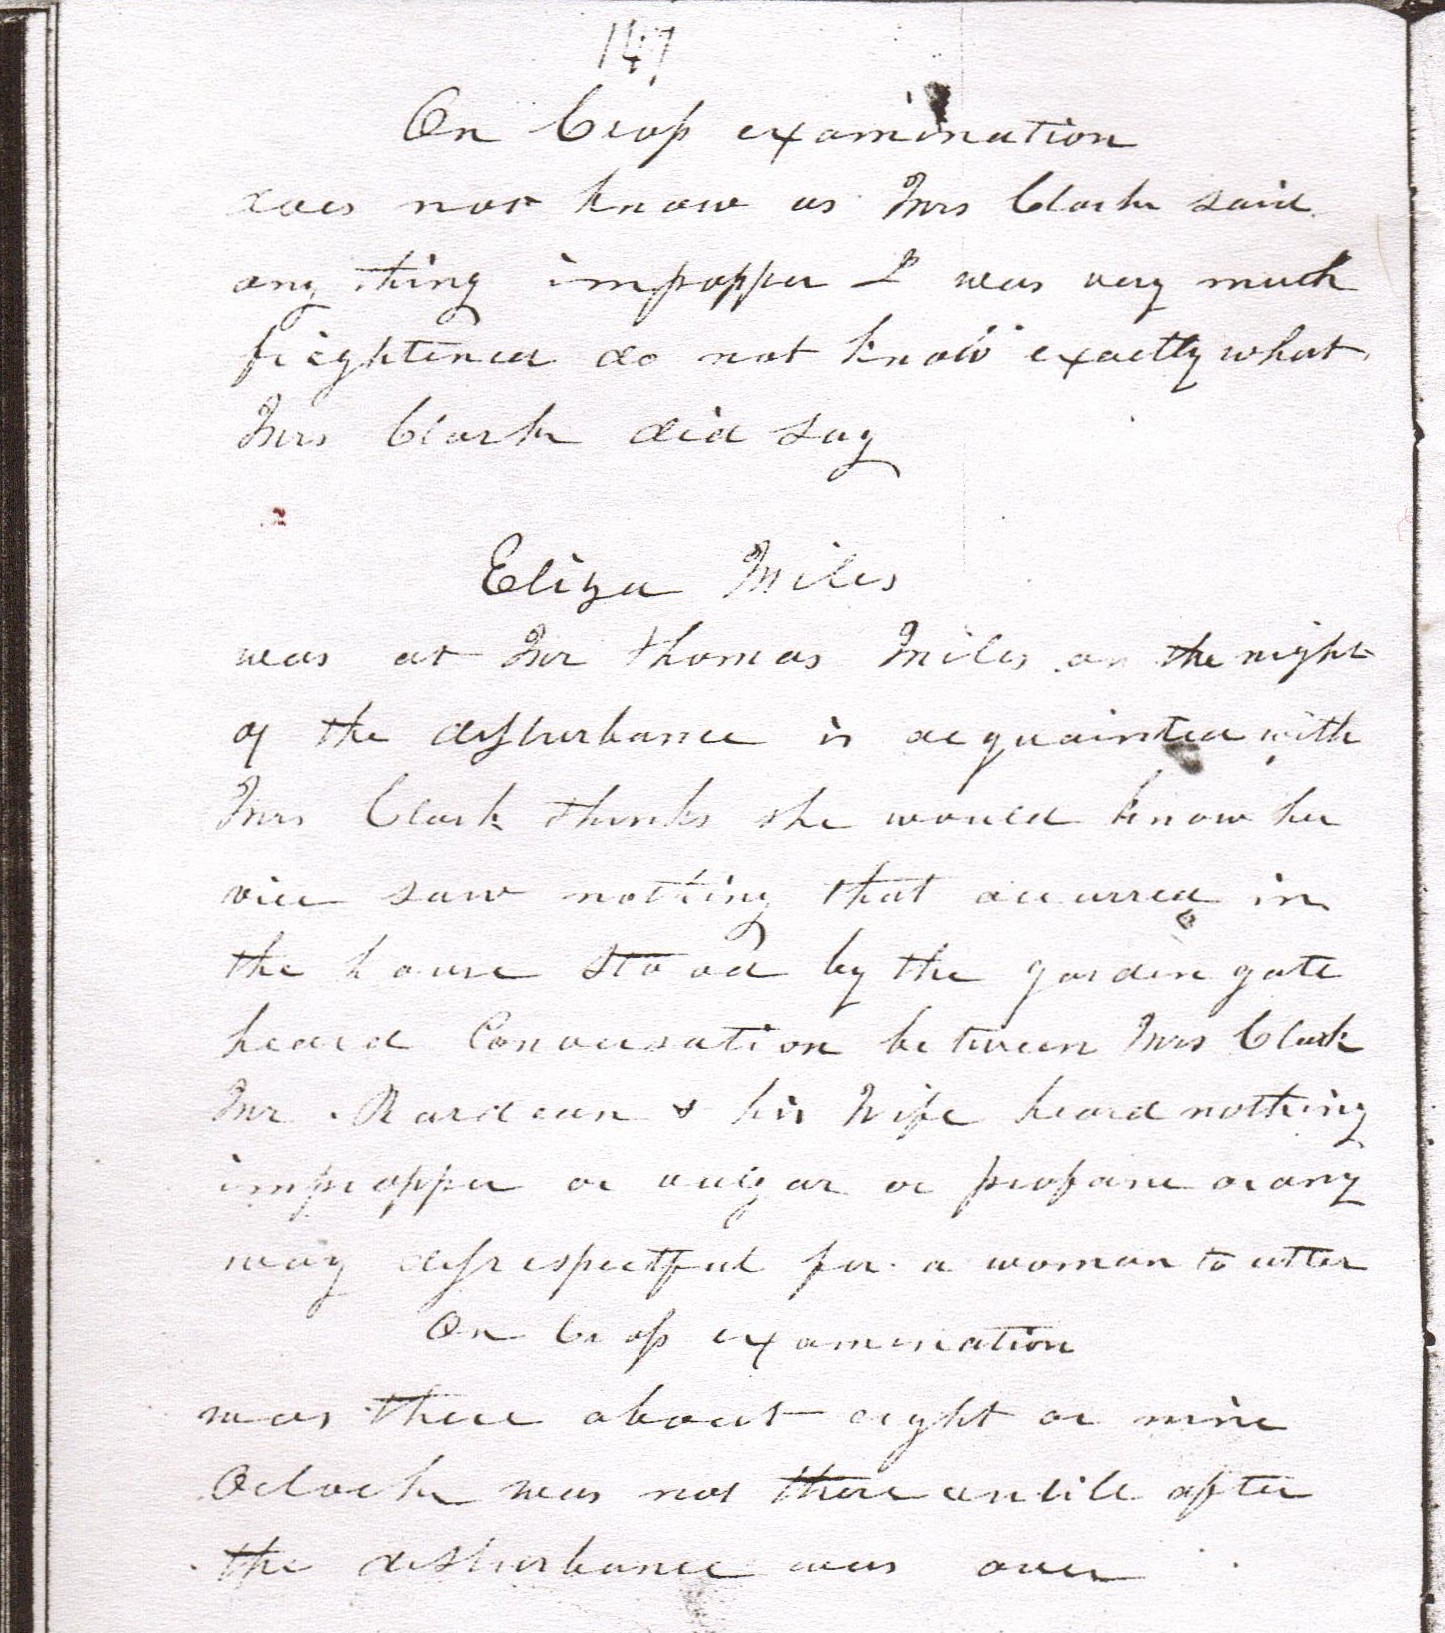 147
On Cross examination
does not know as Mrs Clark said
any thing impropper I was very much
frightened do not know exactly what
Mrs Clark did say
Eliza Miles
was at Mr thomas Miles on the night
of the disturbance is acquainted with
Mrs Clark thinks she would know her
vice saw nothing that accurred in
the house stood by the garden gate
heard Conversation between Mrs Clark
Mr Rardean & his Wife heard nothing
impropper or vulgar or profane or any
way disrespectful for a woman to utter
On Cross examination
was there about eight or nine
Oclock was not there untill after
the disturbance was over